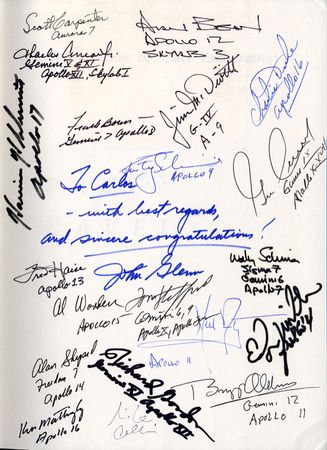 Scott Carpenter
Aurora 7
Alan Bean
Apollo 12
Skylab 3
Charles Conrad Jr
Gemini V & XI
Apollo XII, Skylab I
Jim McDivitt
G-IV
A-9
Charlie Duke
Apollo 16
Apollo 17
Frank Borman
Gemini 7 Apollo 8
Rusty Schweickart
APOLLO 9
To Carlos
- with best regards,
and sincere congratulations!
John Glenn
Fred Haise
Apollo 13
Wally Schirra
Sigma 7
Gemini 6
Apollo 7
Al Worden
APOLLO 15
Tom Stafford
Gemini 6, 9
Apollo X, Apollo Soyuz
APOLLO 11
Alan Shepard
Freedom 7
Apollo 14
Richard Gordon
Gemini XI
Apollo XII
Buzz Aldrin
Gemini 12
Apollo 11
Ken Mattingly
Apollo 16